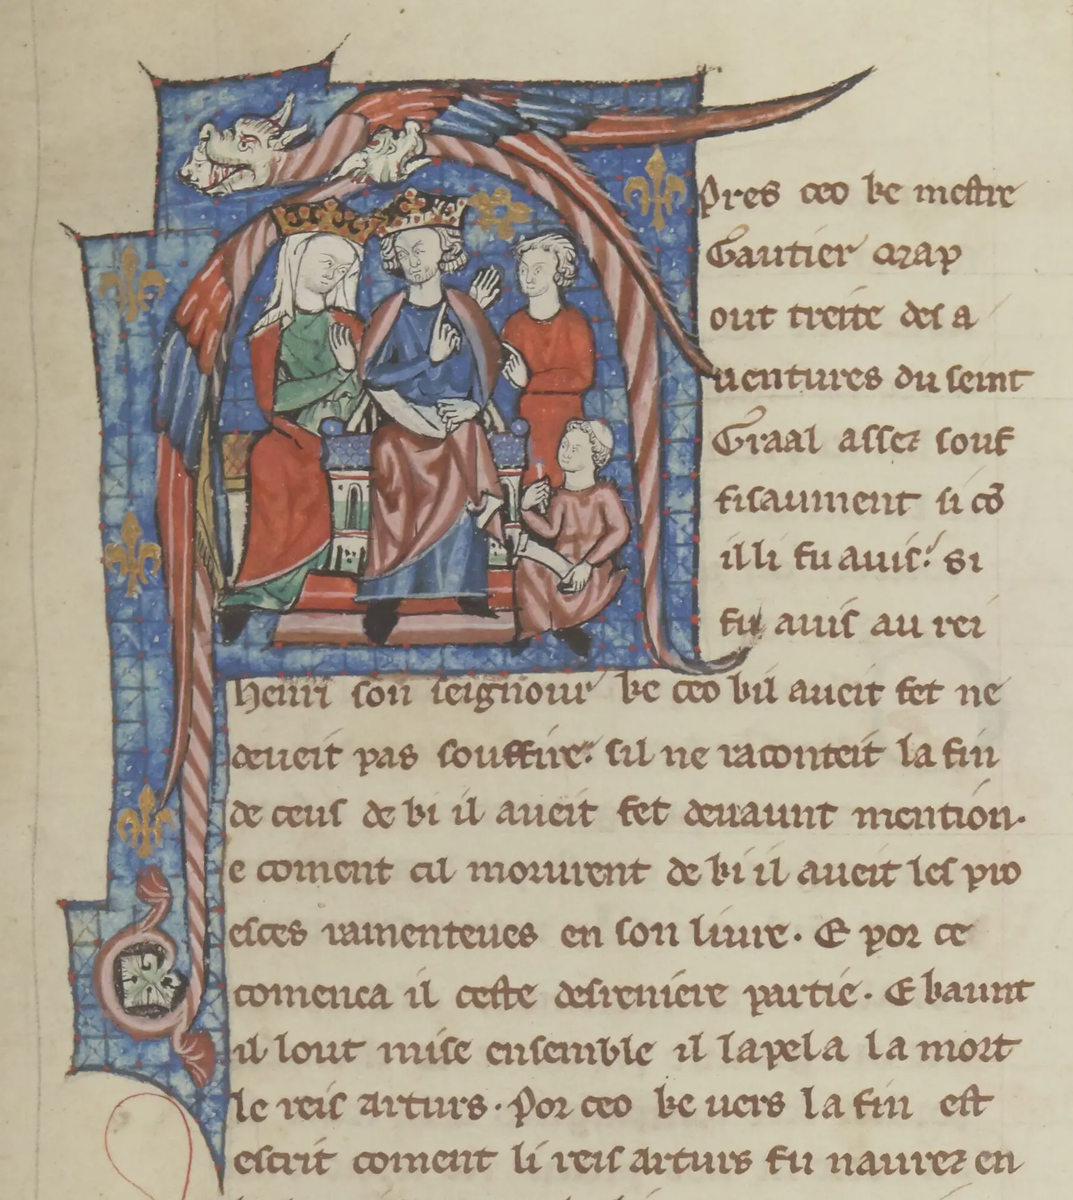 Apres ceo ke mestre
Gautier Map
out treite des a
uentures du seint
Graal assez souf
fisaument si cō
il li fu auis: si
fu auis au rei
henri son seignour ke ceo kil aueit fet ne
deueit pas souffire: sil ne raconteit la fin
de ceus de ki il aueit fet deuaunt mention.
e coment cil morurent de ki il aueit les pro
esces ramenteues en son liure. E por ce
comenca il ceste desreniere partie. E kaunt
il lout mise ensemble il lapela la mort
le reis arturs. Por ceo ke uers la fin est
escrit coment li reis arturs fu naurez en